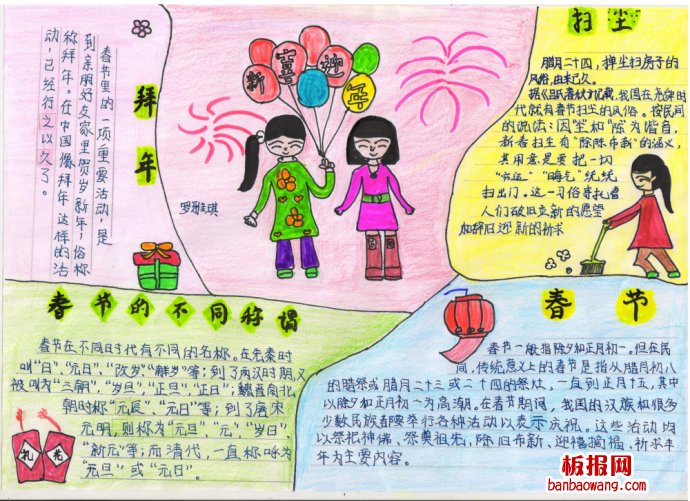 拜年
春节里的一项重要活动,是
到亲朋好友家里贺岁新年,俗称
称拜年。在中国像拜年这样的活
动,已经行之以久了。
新喜迎年
扫尘
腊月二十四,掸尘扫房子的
风俗,由来已久。
我国在尧舜时
代就有春节扫尘的风俗。按民间
的说法:因“尘”和“陈”为谐音,
新春扫尘有“除陈布新”的涵义,
其用意是要把一切
“晦气”统统
扫出门。这一习俗寄托着
人们破旧立新的愿望
和辞旧迎新的祈求
春节的不同称谓
春节在不同时代有不同的名称。在先秦时
叫“日”、“元日”、“改岁”、“献岁”等;到了两汉时期,又
被叫为“三朝”、“岁旦”、“正旦”、“正日”;魏晋南北
朝时称“元辰”、“元日”等;到了唐宋
元明,则称为“元旦”、“元”、“岁日”、
“新元”等;而清代,一直称呼为
“元旦”或“元日”。
礼花
春节
春节一般指除夕和正月初一。但在民
间,传统意义上的春节是指从腊月初八
的腊祭或腊月二十三或二十四的祭灶,一直到正月十五,其中
以除夕和正月初一为高潮。在春节期间,我国的汉族和很多
少数民族都要举行各种活动以表示庆祝。这些活动均
以祭祀神佛、祭奠祖先,除旧布新、迎禧接福、祈求丰
年为主要内容。
板报网
banbaowang.com